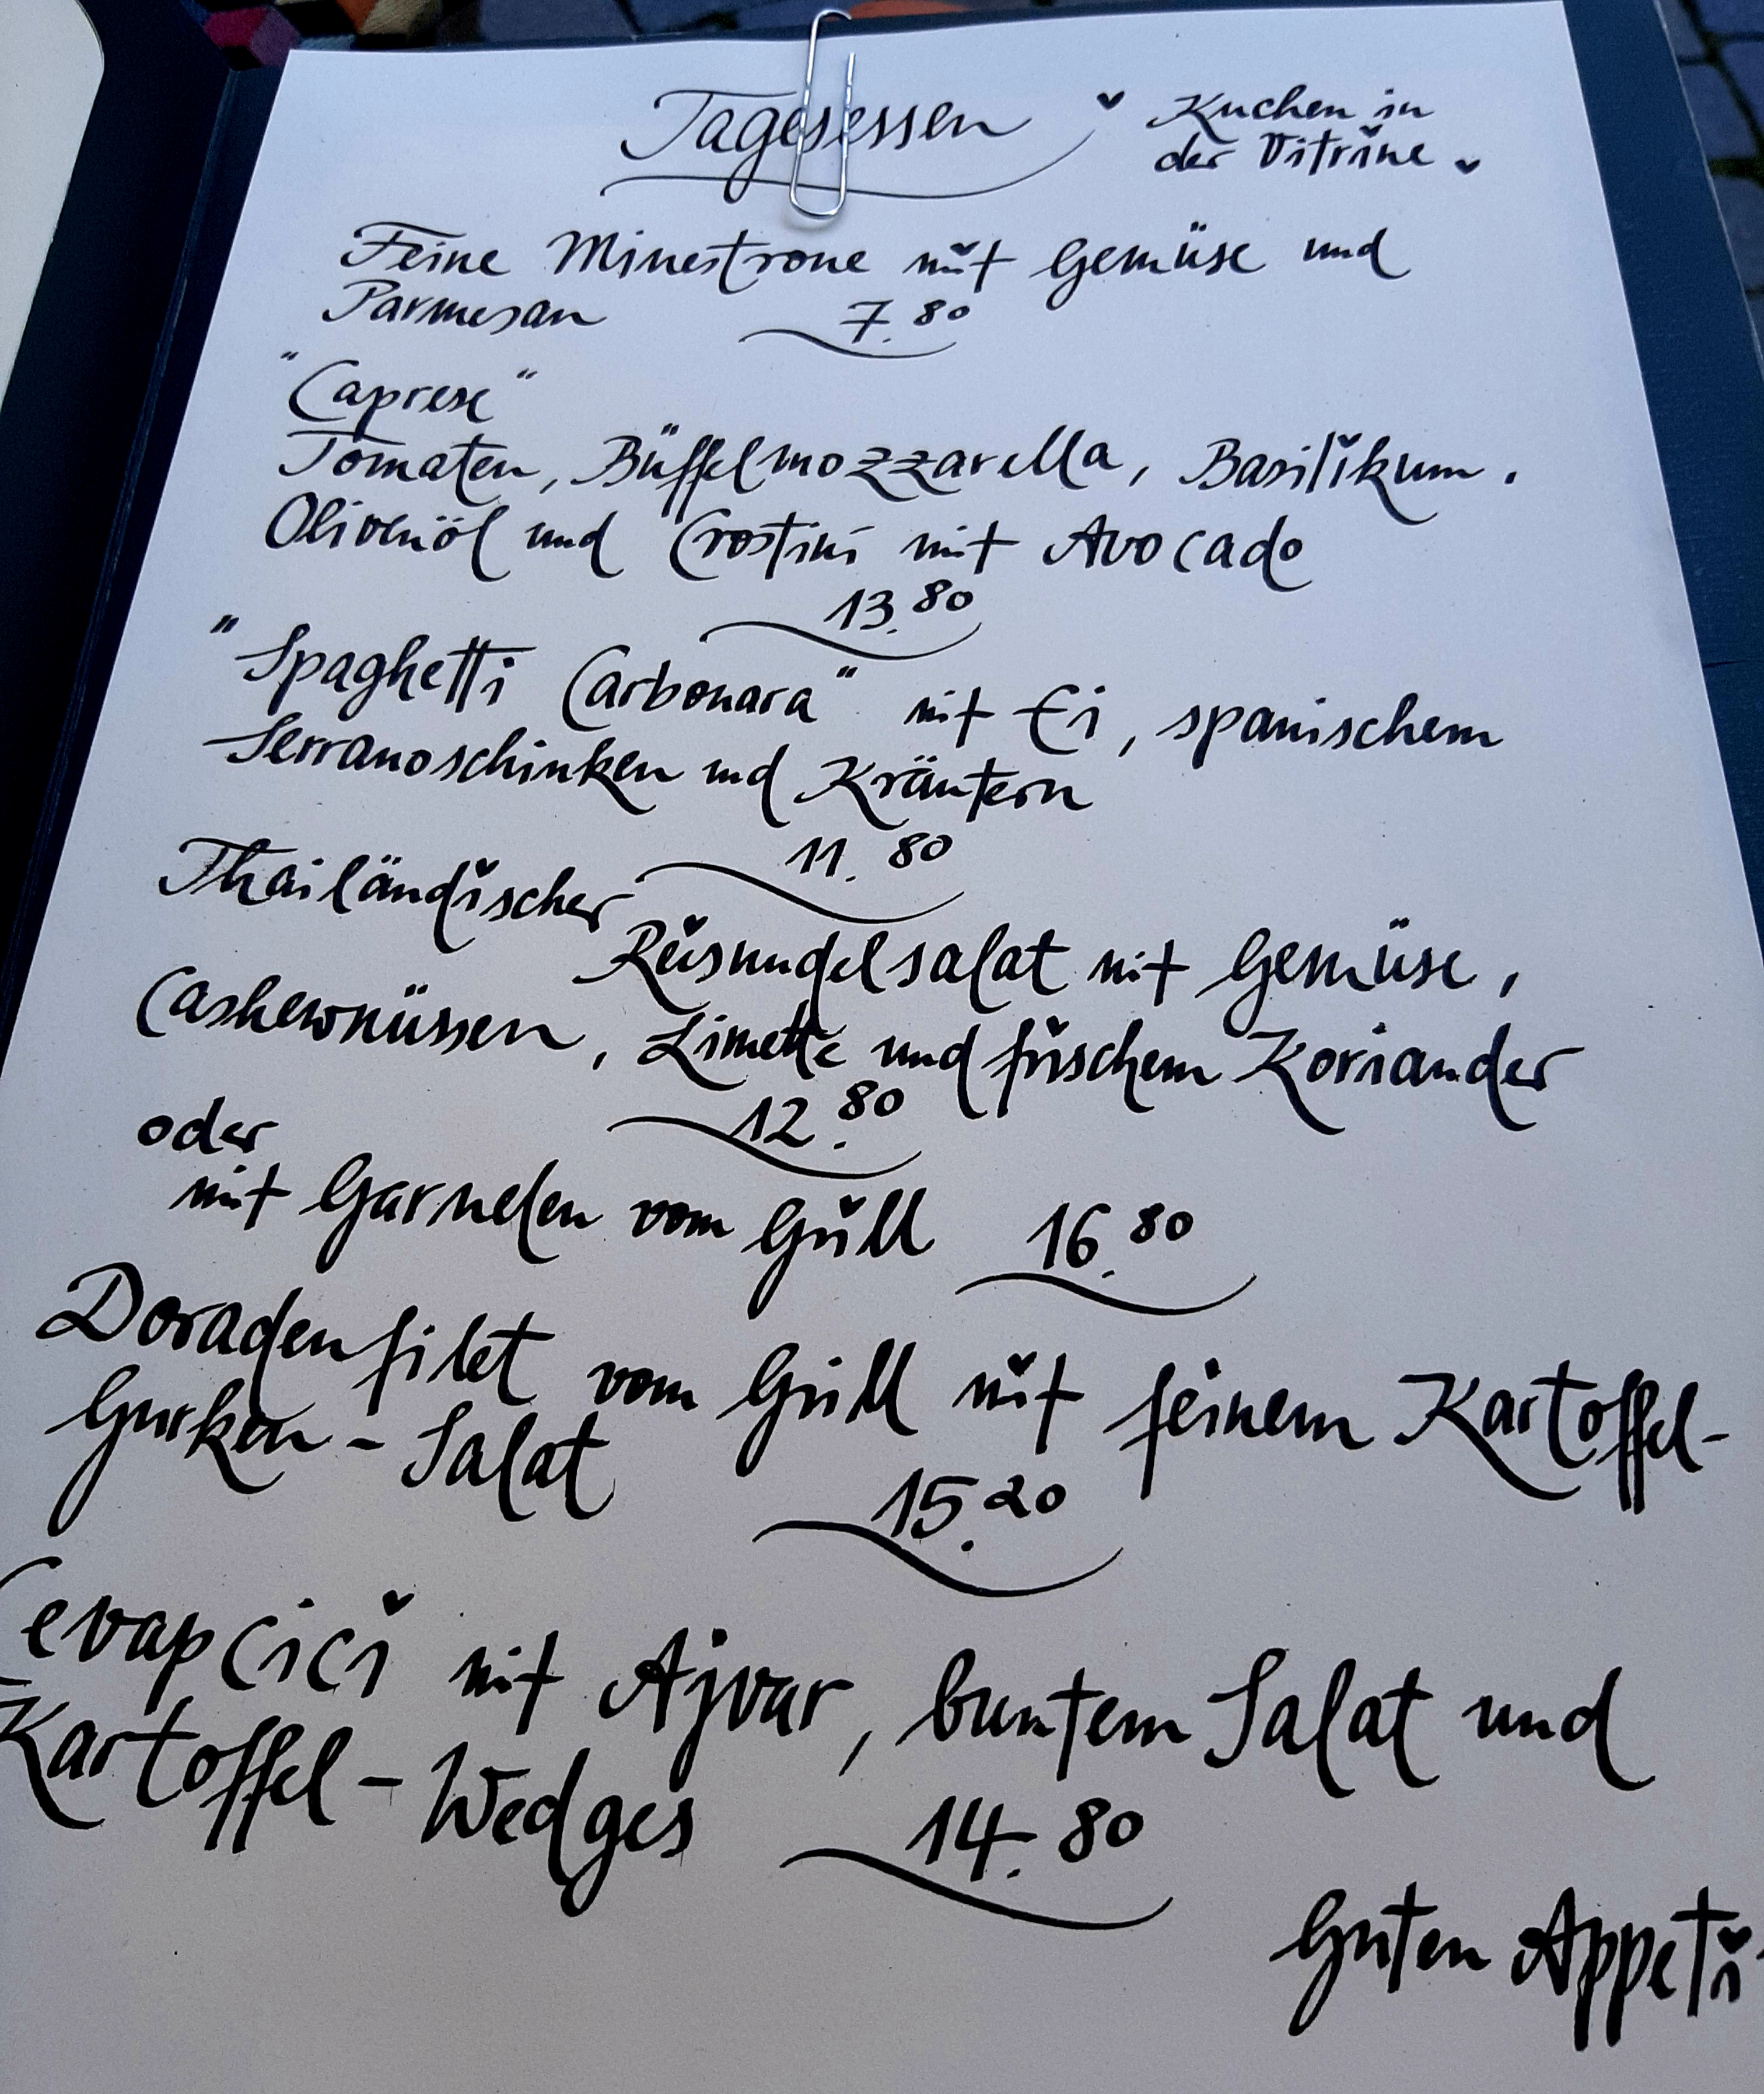 Tagesessen
♥ Kuchen in
der Vitrine ♥
Feine Minestrone mit Gemüse und
Parmesan 7.80
"Caprese"
Tomaten, Büffelmozzarella, Basilikum,
Olivenöl und Crostini mit Avocado
13.80
"Spaghetti Carbonara" mit Ei, spanischem
Serranoschinken und Kräutern
11.80
Thailändischer
Reisnudelsalat mit Gemüse,
Cashewnüssen, Limette und frischem Koriander
12.80
oder
mit Garnelen vom Grill 16.80
Doradenfilet vom Grill mit feinem Kartoffel-
Gurken-Salat
15.20
Cevapcici mit Ajvar, buntem Salat und
Kartoffel-Wedges 14.80
Guten Appeti